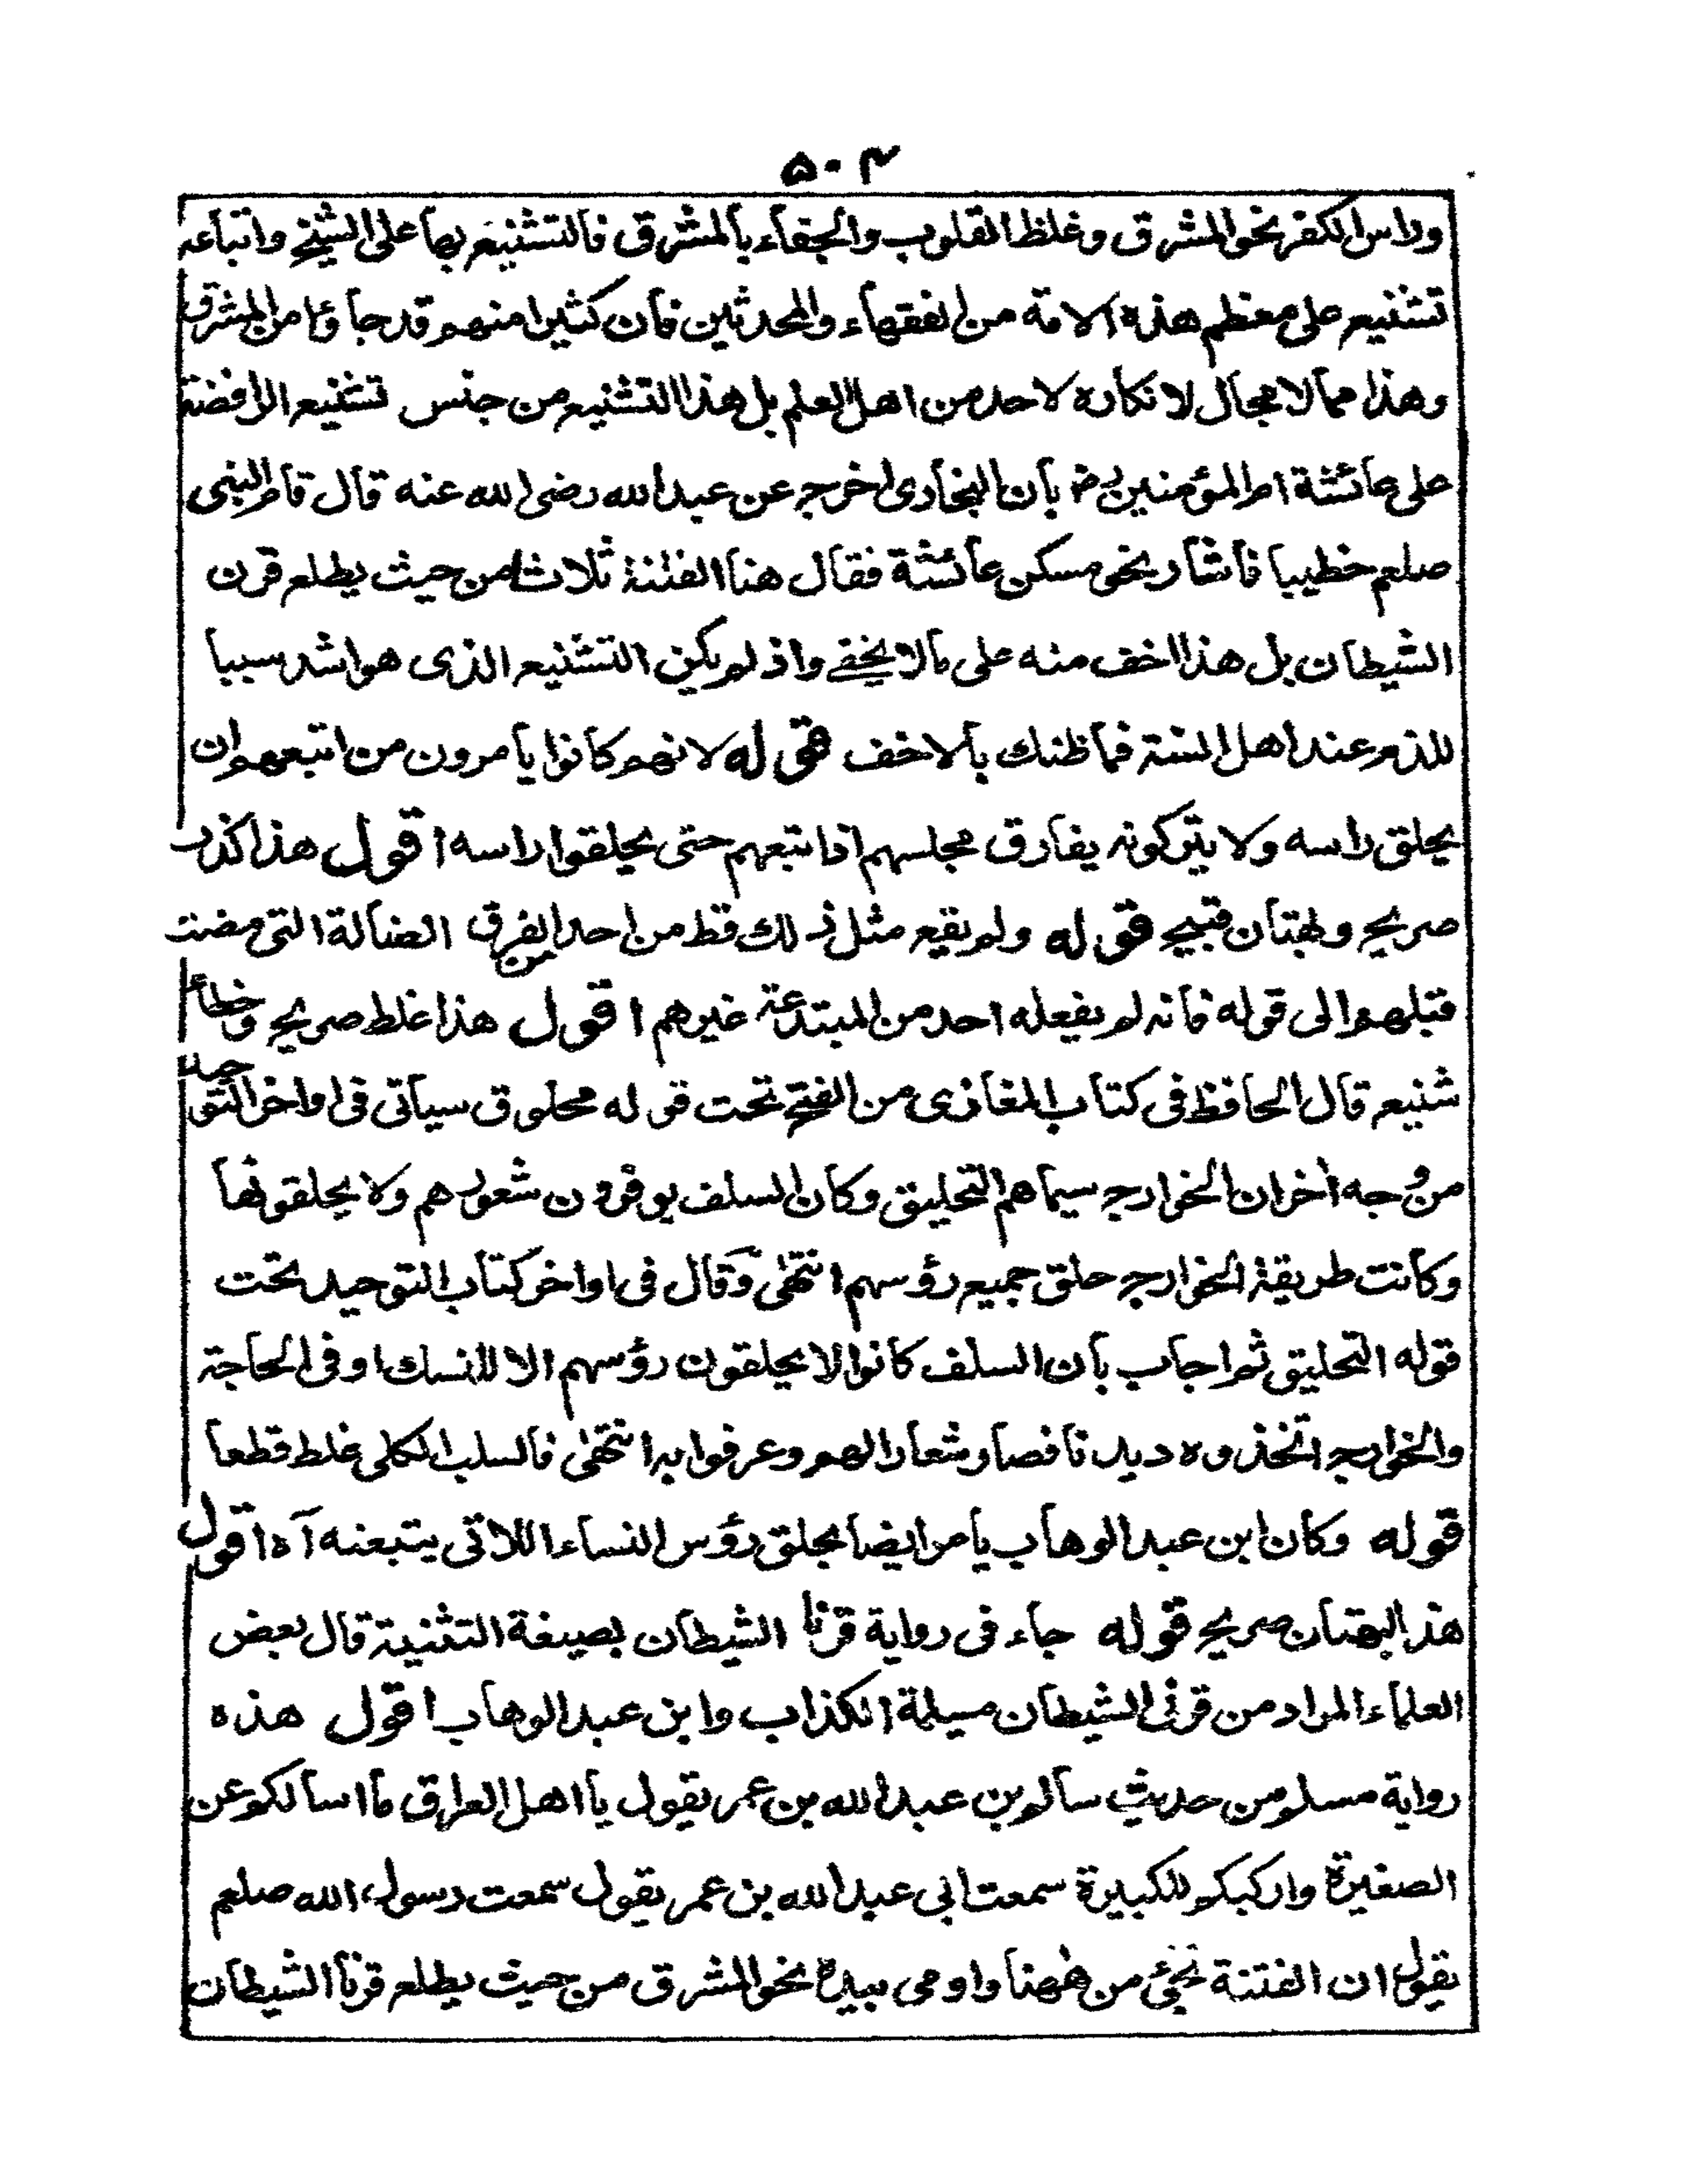 ۵۰۴
وراس الكفر نحو المشرق وغلظ القلوب والجفاء بالمشرق فالتشنيع بها على الشيخ واتباعه
تشنيع على معظم هذه الامة من الفقهاء والمحدثين فان كثيرا منهم قد جاؤا من المشرق
وهذا مما لا مجال لانكاره لاحد من اهل العلم بل هذا التشنيع من جنس تشنيع الرافضة
على عائشة ام المؤمنين رض بان البخاري اخرج عن عبد الله رضى الله عنه قال قام النبى
صلعم خطيبا فاشار نحو مسكن عائشة فقال هنا الفتنة ثلاثا من حيث يطلع قرن
الشيطان بل هذا اخف منه على ما لا يخفے واذ لم يكن التشنيع الذى هو اشد سببا
للذم عند اهل السنة فما ظنك بالاخف قوله لانهم كانوا يأمرون من اتبعهم ان
يحلق راسه ولا يتركونه يفارق مجلسهم اذا تبعهم حتى يحلقوا راسه اقول هذا كذب
صريح وبهتان قبيح قوله ولم يقع مثل ذلك قط من احد من الفرق الضالة التى مضت
قبلهم الى قوله فانه لم يفعله احد من المبتدعة غيرهم اقول هذا غلط صريح وخطأ
شنيع قال الحافظ فى كتاب المغازى من الفتح تحت قوله محلوق سياتى فى اواخر التوحيد
من وجه اخر ان الخوارج سيماهم التحليق وكان السلف يوفرون شعورهم ولا يحلقونها
وكانت طريقة الخوارج حلق جميع رؤسهم انتهٰى وقال فى اواخر كتاب التوحيد تحت
قوله التحليق ثم اجاب بان السلف كانوا لا يحلقون رؤسهم الا للنسك او فى الحاجة
والخوارج اتخذوه ديدنا فصار شعارا لهم وعرفوا به انتهٰى فالسلب الكلى غلط قطعا
قوله وكان ابن عبد الوهاب يامر ايضا بحلق رؤس النساء اللاتى يتبعنه آه اقول
هذا بهتان صريح قوله جاء فى رواية قرنا الشيطان بصيغة التثنية قال بعض
العلماء المراد من قرنى الشيطان مسيلمة الكذاب وابن عبد الوهاب اقول هذه
رواية مسلم من حديث سالم بن عبد الله بن عمر يقول يا اهل العراق ما اسالكم عن
الصغيرة واركبكم للكبيرة سمعت ابى عبد الله بن عمر يقول سمعت رسول الله صلعم
يقول ان الفتنة تجئ من ههنا واومى بيده نحو المشرق من حيث يطلع قرنا الشيطان